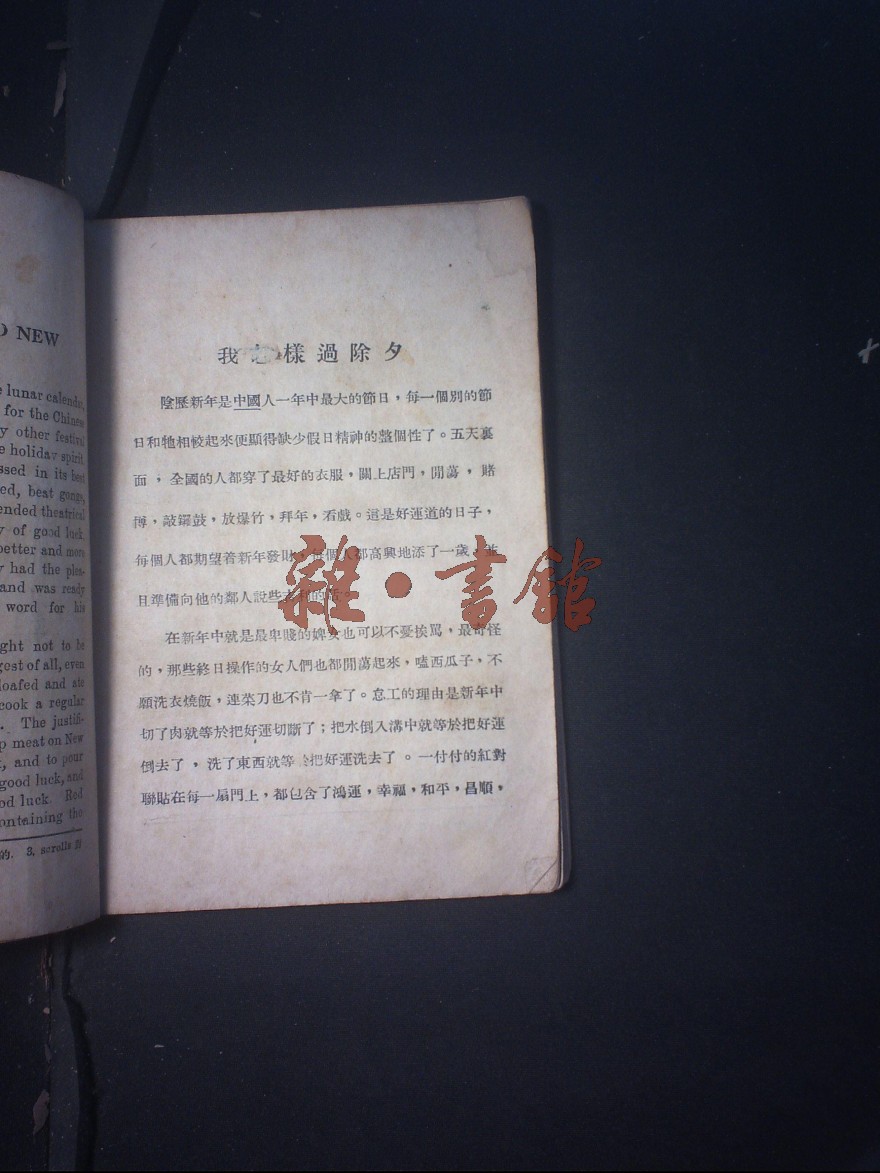 D NEW
e lunar calendar,
for the Chinese
y other festival
e holiday spirit.
ssed in its best
ed, beat gongs,
ended theatrical
y of good luck.
better and more
y had the plea-
and was ready
word for his
ght not to be
gest of all, even
loafed and ate
cook a regular
. The justifi-
p meat on New
, and to pour
good luck, and
od luck. Red
ontaining the
的. 3. scrolls
我 樣過除夕
陰歷新年是中國人一年中最大的節日，每一個別的節
日和牠相較起來便顯得缺少假日精神的整個性了。五天裏
面，全國的人都穿了最好的衣服，關上店門，閒蕩，賭
博，敲鑼鼓，放爆竹，拜年，看戲。這是好運道的日子，
每個人都期望着新年發財，每個人都高興地添了一歲，並
且準備向他的鄰人說些
在新年中就是最卑賤的婢女也可以不憂挨罵，最奇怪
的，那些終日操作的女人們也都閒蕩起來，嗑西瓜子，不
願洗衣燒飯，連菜刀也不肯一拿了。怠工的理由是新年中
切了肉就等於把好運切斷了；把水倒入溝中就等於把好運
倒去了，洗了東西就等 把好運洗去了。一付付的紅對
聯貼在每一扇門上，都包含了鴻運，幸福，和平，昌順，
雜·書館